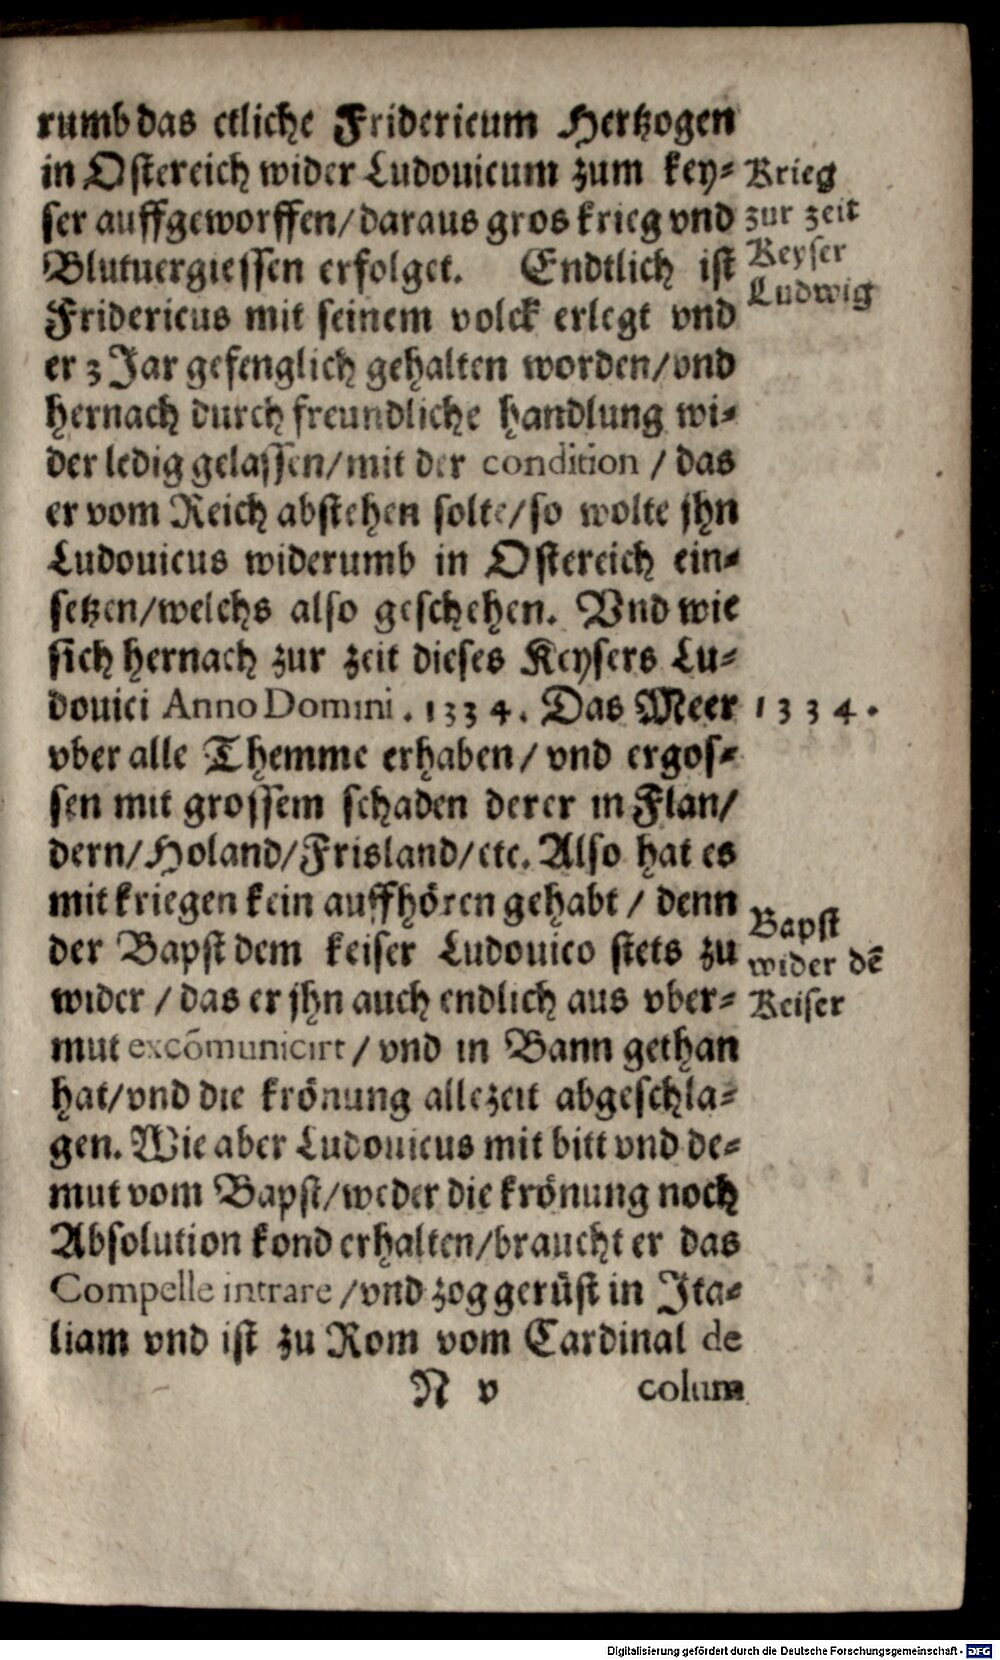 rumb das etliche Fridericum Hertzogen
in Ostereich wider Ludouicum zum key-
ser auffgeworffen/daraus gros krieg vnd
Blutuergiessen erfolget. Endtlich ist
Fridericus mit seinem volck erlegt vnd
er 3 Jar gefenglich gehalten worden/vnd
hernach durch freundliche handlung wi-
der ledig gelassen/mit der condition / das
er vom Reich abstehen solte/so wolte jhn
Ludouicus widerumb in Ostereich ein-
setzen/welchs also geschehen. Vnd wie
sich hernach zur zeit dieses Keysers Lu-
douici Anno Domini . 1334. Das Meer
vber alle Themme erhaben/ vnd ergos-
sen mit grossem schaden derer in Flan/
dern/Holand/Frisland/etc. Also hat es
mit kriegen kein auffhören gehabt / denn
der Bapst dem keiser Ludouico stets zu
wider / das er jhn auch endlich aus vber-
mut excõmunicirt / vnd in Bann gethan
hat/vnd die krönung allezeit abgeschla-
gen. Wie aber Ludouicus mit bitt vnd de-
mut vom Bapst/weder die krönung noch
Absolution kond erhalten/braucht er das
Compelle intrare /vnd zog gerüst in Ita-
liam vnd ist zu Rom vom Cardinal de
N v colum
Krieg
zur zeit
Keyser
Ludwig
1334.
Bapst
wider dē
Keiser
Digitalisierung gefördert durch die Deutsche Forschungsgemeinschaft - DFG